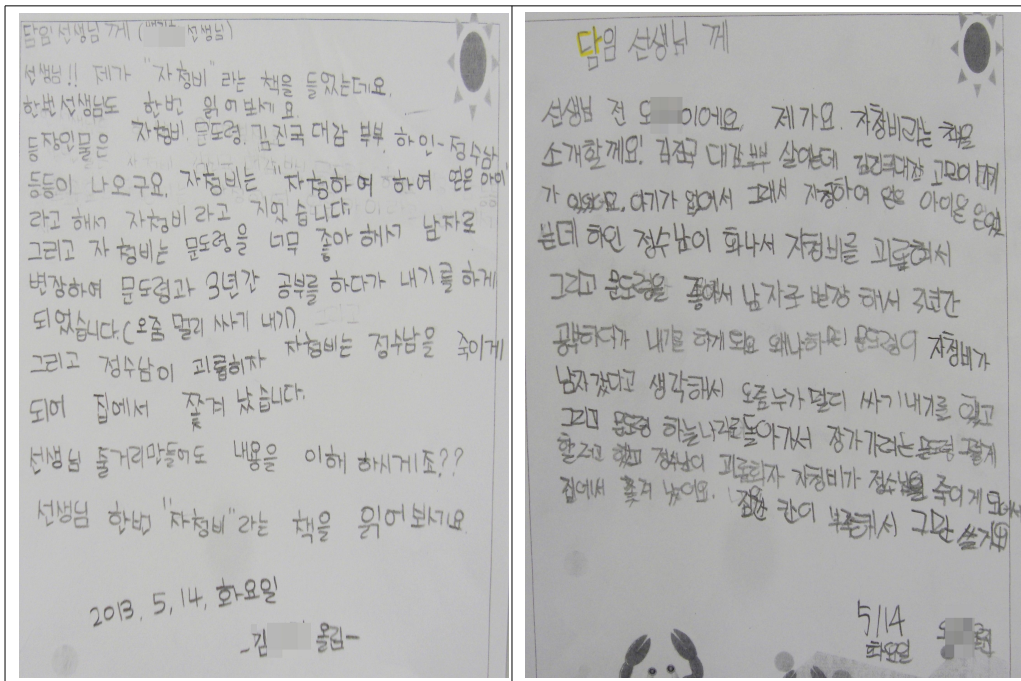 담임선생님께 ( 선생님)
선생님!! 제가 "자청비"라는 책을 들었는데요.
한번선생님도 한번 읽어보세요
등장인물은 자청비, 문도령, 김진국 대감 부부, 하인-정수남
등등이 나오구요, 자청비는 "자청하여 하여 얻은 아이
라고 해서 자청비 라고 지었습니다.
그리고 자청비는 문도령을 너무 좋아해서 남자로
변장하여 문도령과 3년간 공부를 하다가 내기를 하게
되었습니다.(오줌 멀리 싸기 내기)
그리고 정수남이 괴롭히자 자청비는 정수남을 죽이게
되어 집에서 쫓겨 났습니다.
선생님 줄거리만들어도 내용을 이해 하시게죠??
선생님 한번 "자청비"라는 책을 읽어보세요
2013. 5, 14, 화요일
-김 올림-
담임 선생님 께
선생님 전 오 이에요. 제가요. 자청비라는 책을
소개할께요! 김진국 대감 부부 살았는데 김진국대감 고민이
가 있었어요. 아기가 없어서 그래서 자청하여 얻은 아이은
는데 하인 정수남이 화나서 자청비를 괴롭혀서
그리고 문도령을 좋아서 남자로 변장 해서 3년간
공부하다가 내기를 하게되요 왜냐하면 문도령이 자청비가
남자같다고 생각해서 오줌누가멀리 싸기내기를 했고
그리고 문도령 하늘나라로돌아가서 장가가려는 문도령 그렇게
할려고 했고 정수남이 괴롭히자 자청비가 정수남을 죽이게 되어서
집에서 쫓겨 났어요. 칸이 부족해서 그만 쓸게요
5/14
화요일 오 올림